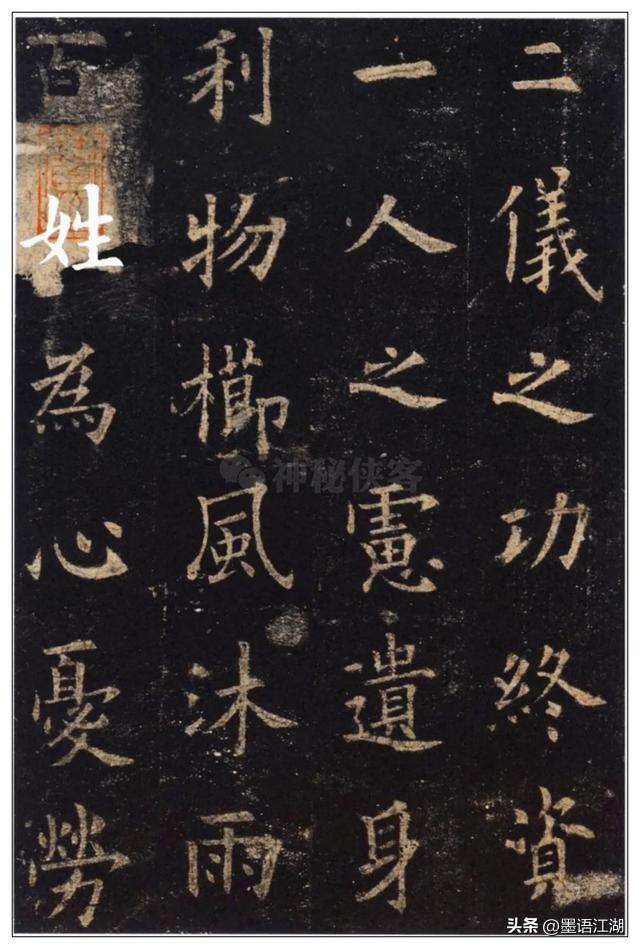 二儀之功終資
一人之慮遺身
利物櫛風沐雨
百姓為心憂勞
神秘侠客
头条 @墨语江湖